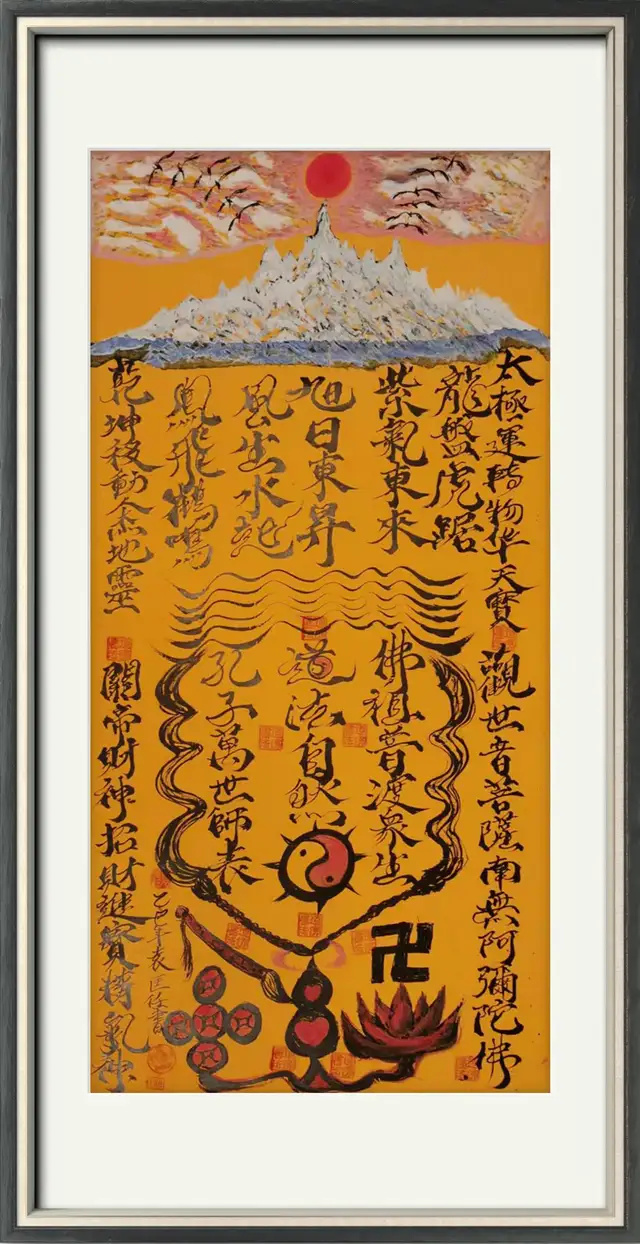 太極運轉物华天寶
龍盤虎踞
紫氣東來
旭日東昇
風生水起
鳳飛鶴鳴
乾坤移動人杰地靈
觀世音菩薩南無阿彌陀佛
佛祖普渡衆生
道法自然
孔子萬世師表
關帝財神招財進寶精氣神
乙巳年袁匡
卍